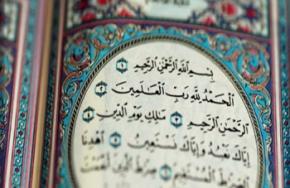 بِسْمِ اللَّهِ الرَّحْمَٰنِ الرَّحِيمِ ١
الْحَمْدُ لِلَّهِ رَبِّ الْعَالَمِينَ ٢
الرَّحْمَٰنِ الرَّحِيمِ ٣ مَالِكِ يَوْمِ الدِّينِ ٤
إِيَّاكَ نَعْبُدُ وَإِيَّاكَ نَسْتَعِينُ ٥ اهْدِنَا
الصِّرَاطَ الْمُسْتَقِيمَ ٦ صِرَاطَ الَّذِينَ أَنْعَمْتَ